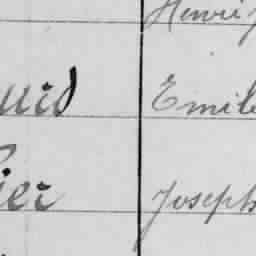 Henri
urd Emile
ier Joseph